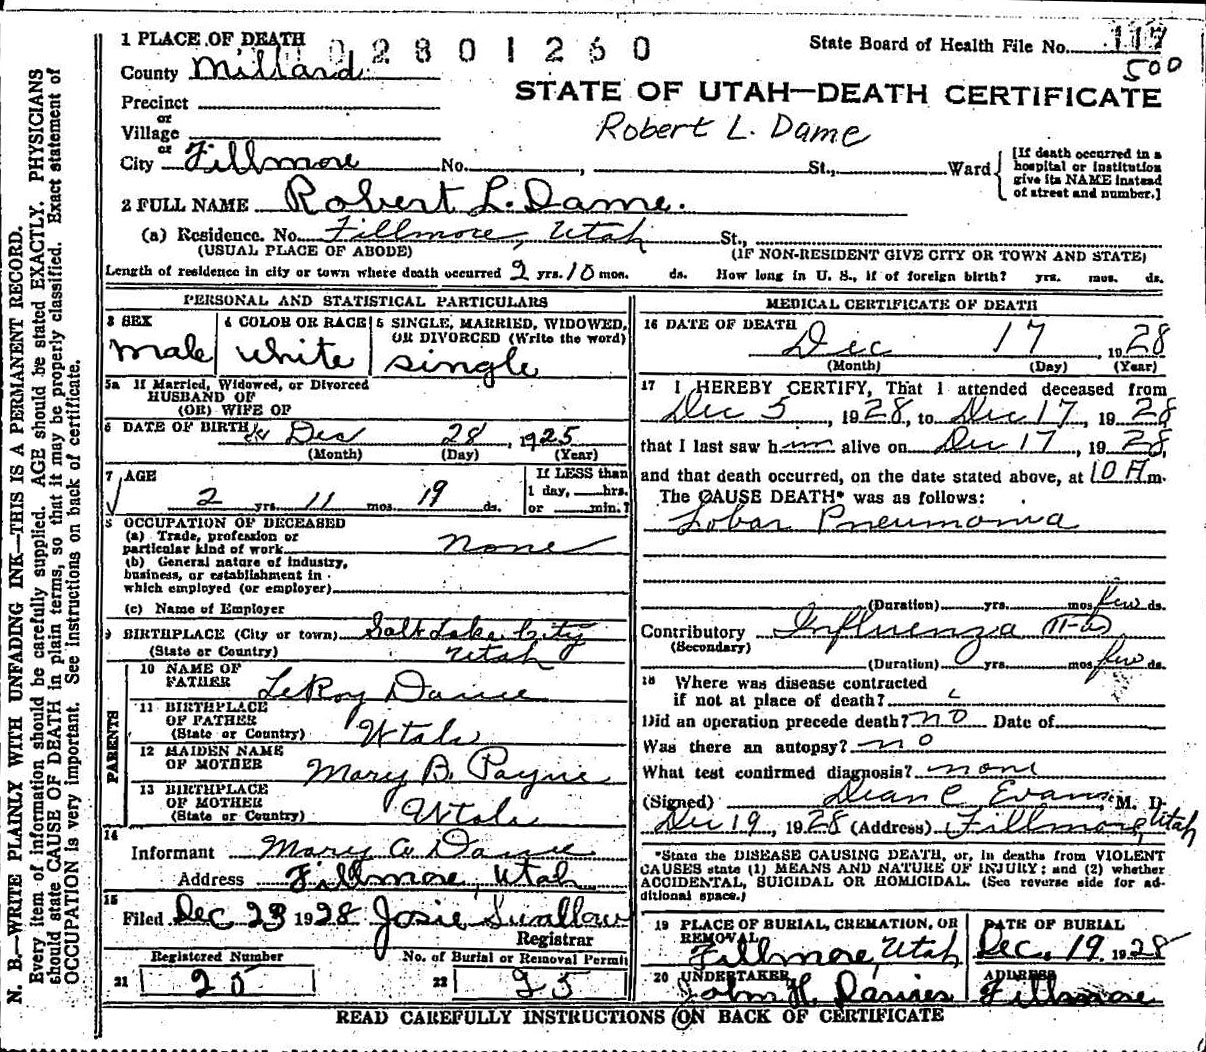 1 PLACE OF DEATH
0 2 8 0 1 2 6 0
State Board of Health File No. 117
County Millard
500
STATE OF UTAH—DEATH CERTIFICATE
Precinct
or
Village
Robert L. Dame
or
City Fillmore No. , St., Ward
[If death occurred in a
hospital or institution
give its NAME instead
of street and number.]
2 FULL NAME Robert L. Dame.
(a) Residence. No. Fillmore, Utah St.,
(USUAL PLACE OF ABODE) (IF NON-RESIDENT GIVE CITY OR TOWN AND STATE)
Length of residence in city or town where death occurred 2 yrs. 10 mos. ds. How long in U. S., if of foreign birth? yrs. mos. ds.
PERSONAL AND STATISTICAL PARTICULARS
3 SEX 4 COLOR OR RACE 5 SINGLE, MARRIED, WIDOWED,
OR DIVORCED (Write the word)
male white single
5a If Married, Widowed, or Divorced
HUSBAND OF
(OR) WIFE OF
6 DATE OF BIRTH Dec 28, 1925
(Month) (Day) (Year)
7 AGE If LESS than
2 yrs. 11 mos. 19 ds. 1 day, hrs.
or min.?
8 OCCUPATION OF DECEASED
(a) Trade, profession or
particular kind of work none
(b) General nature of industry,
business, or establishment in
which employed (or employer)
(c) Name of Employer
9 BIRTHPLACE (City or town) Salt Lake City
(State or Country) Utah
PARENTS
10 NAME OF
FATHER LeRoy Dame
11 BIRTHPLACE
OF FATHER
(State or Country) Utah
12 MAIDEN NAME
OF MOTHER Mary B. Payne
13 BIRTHPLACE
OF MOTHER
(State or Country) Utah
14
Informant Mary a Dame
Address Fillmore, Utah
15
Filed Dec 23 1928 Josie Swallow
Registrar
Registered Number No. of Burial or Removal Permit
21 25 22 25
MEDICAL CERTIFICATE OF DEATH
16 DATE OF DEATH
Dec 17, 1928
(Month) (Day) (Year)
17 I HEREBY CERTIFY, That I attended deceased from
Dec 5, 1928, to Dec 17, 1928,
that I last saw him alive on Dec 17, 1928,
and that death occurred, on the date stated above, at 10 A m.
The CAUSE DEATH* was as follows:
Lobar Pneumonia
(Duration) yrs. mos. few ds.
Contributory Influenza
(Secondary)
(Duration) yrs. mos. few ds.
18 Where was disease contracted
if not at place of death?
Did an operation precede death? no Date of
Was there an autopsy? no
What test confirmed diagnosis? none
(Signed) Dean C Evans, M. D.
Dec 19, 1928 (Address) Fillmore, Utah
*State the DISEASE CAUSING DEATH, or, in deaths from VIOLENT
CAUSES state (1) MEANS AND NATURE OF INJURY; and (2) whether
ACCIDENTAL, SUICIDAL OR HOMICIDAL. (See reverse side for ad-
ditional space.)
19 PLACE OF BURIAL, CREMATION, OR
REMOVAL
Fillmore, Utah
DATE OF BURIAL
Dec. 19 1928
20 UNDERTAKER ADDRESS
John H. Davies Fillmore
READ CAREFULLY INSTRUCTIONS ON BACK OF CERTIFICATE
N. B.—WRITE PLAINLY WITH UNFADING INK—THIS IS A PERMANENT RECORD.
Every item of information should be carefully supplied. AGE should be stated EXACTLY. PHYSICIANS
should state CAUSE OF DEATH in plain terms, so that it may be properly classified. Exact statement of
OCCUPATION is very important. See instructions on back of certificate.